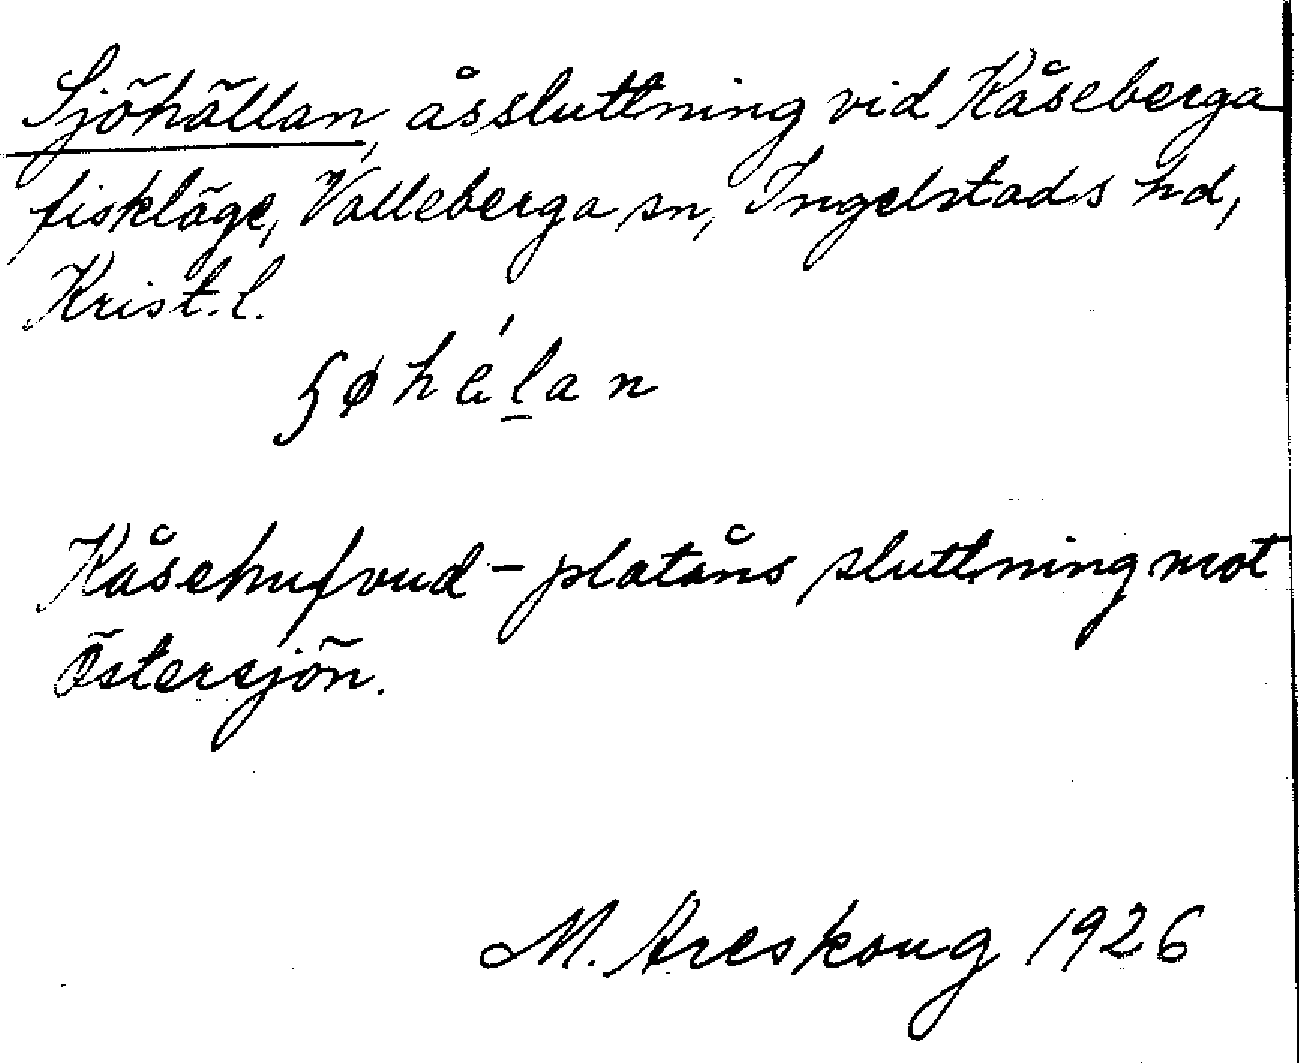 Sjöhällan, åssluttning vid Kåseberga
fiskläge, Valleberga sn, Ingelstads hd,
Krist. l.
Kåsehufvud-platåns sluttning mot
Östersjön.
M. Areskoug 1926